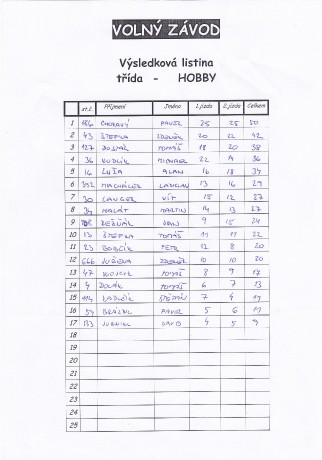 VOLNÝ ZÁVOD
Výsledková listina
třída - HOBBY
st.č. Příjmení Jméno 1.jízda 2.jízda Celkem
1 PAVEL 25 25 50
2 43 ŠTĚPKA ZDENĚK 20 22 42
3 127 TOMÁŠ 18 20 38
4 36 KUDLÍK MICHAEL 22 36
5 16 ALAN 16 18 34
6 352 MACHÁČEK LADISLAV 13 16 29
7 30 LANGER VÍT 15 12 27
8 34 MALÁT MARTIN 14 13 27
9 IVAN 9 15 24
10 13 ŠTĚPKA TOMÁŠ 11 11 22
11 23 PETR 12 8 20
12 666 ZDENĚK 10 10 20
13 47 TOMÁŠ 8 9 17
14 4 TOMÁŠ 6 7 13
15 ŠTĚPÁN 7 4 11
16 PAVEL 5 6 11
17 DAVID 4 5 9
18
19
20
21
22
23
24
25